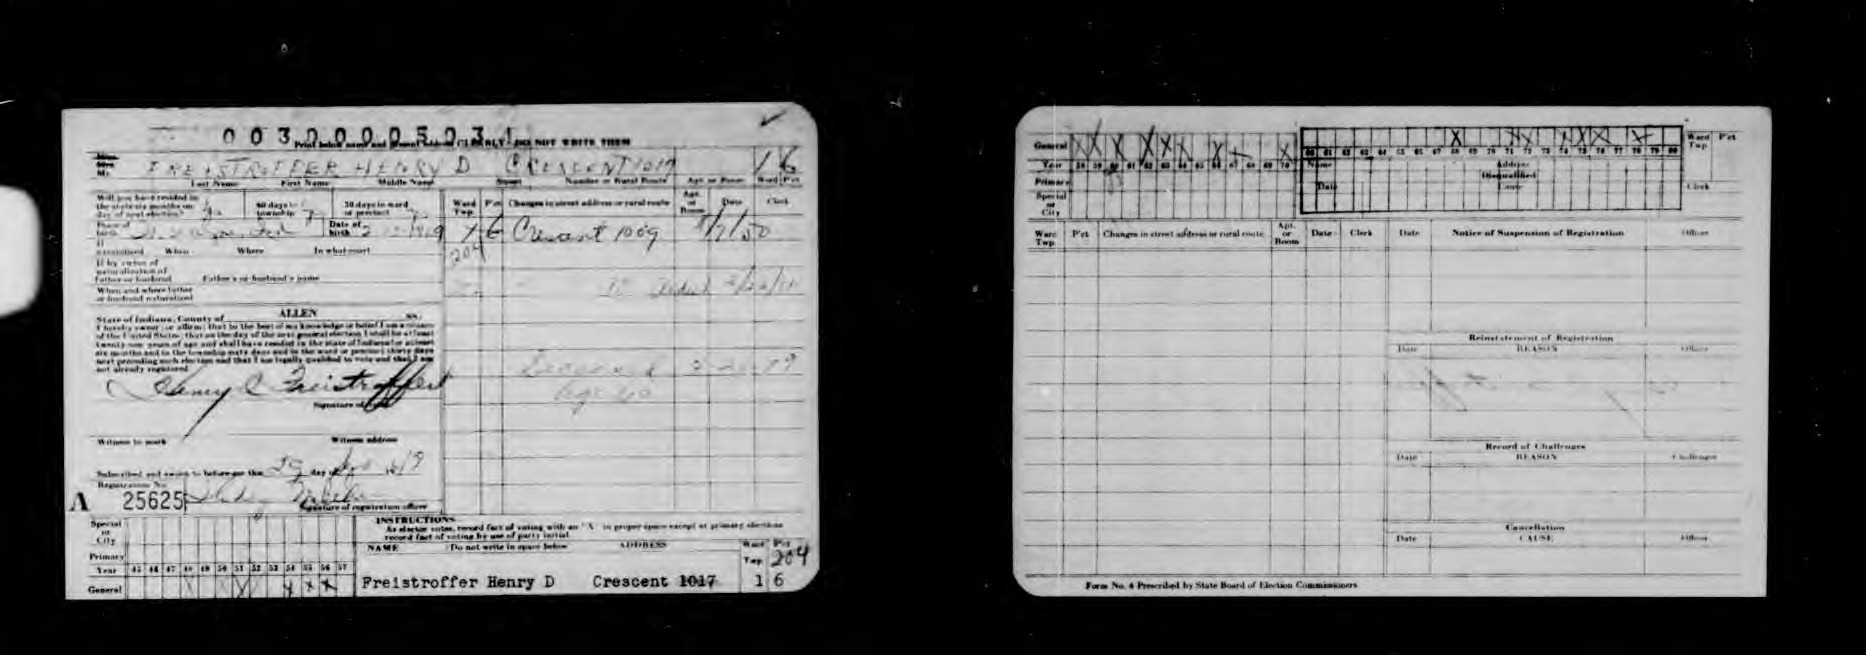 003000050341
Print below name and street address CLEARLY DO NOT WRITE THEM
Mr. FREISTROFFER HENRY D CRESCENT 1017 1 6
Last Name First Name Middle Name Street Number or Rural Route Apt. or Room Ward Pct
Will you have resided in the state six months on day of next election? 60 days in township 30 days in ward or precinct
Ward Twp. P'ct Changes in street address or rural route Apt. or Room Date Clerk
Place of birth Date of birth 2 12 1919
1 6 Crescent 1009 50
204
If naturalized When Where In what court
If by virtue of naturalization of father or husband Father's or husband's name
When and where father or husband naturalized
State of Indiana, County of ALLEN SS:
I hereby swear or affirm, that to the best of my knowledge or belief I am a citizen
of the United States; that on the day of the next general election I shall be at least
twenty-one years of age and shall have resided in the state of Indiana for at least
six months and in the township sixty days and in the ward or precinct thirty days
next preceding such election and that I am legally qualified to vote and that I am
not already registered
Deceased 79
Henry D Freistroffer
Signature of
Witness to mark Witness address
Subscribed and sworn to before me this 29 day of
Registration No.
A 25625
Signature of registration officer
Special or City
Primary
Year 45 46 47 48 49 50 51 52 53 54 55 56 57
General X X X X X
INSTRUCTIONS
As elector votes, record fact of voting with an "X" in proper space except at primary elections
record fact of voting by use of party initial
NAME (Do not write in space below ADDRESS Ward Twp P'ct
204
Freistroffer Henry D Crescent 1017 1 6
General
Year 58 59 60 61 62 63 64 65 66 67 68 69 70
Primary
Special or City
60 61 62 63 64 65 66 67 68 69 70 71 72 73 74 75 76 77 78 79 80
Name Address
Disqualified
Date Cause Clerk
Ward Twp P'ct
Ward Twp. P'ct Changes in street address or rural route Apt. or Room Date Clerk Date Notice of Suspension of Registration Officer
Reinstatement of Registration
Date REASON Officer
Record of Challenges
Date REASON Challenger
Cancellation
Date CAUSE Officer
Form No. 4 Prescribed by State Board of Election Commissioners